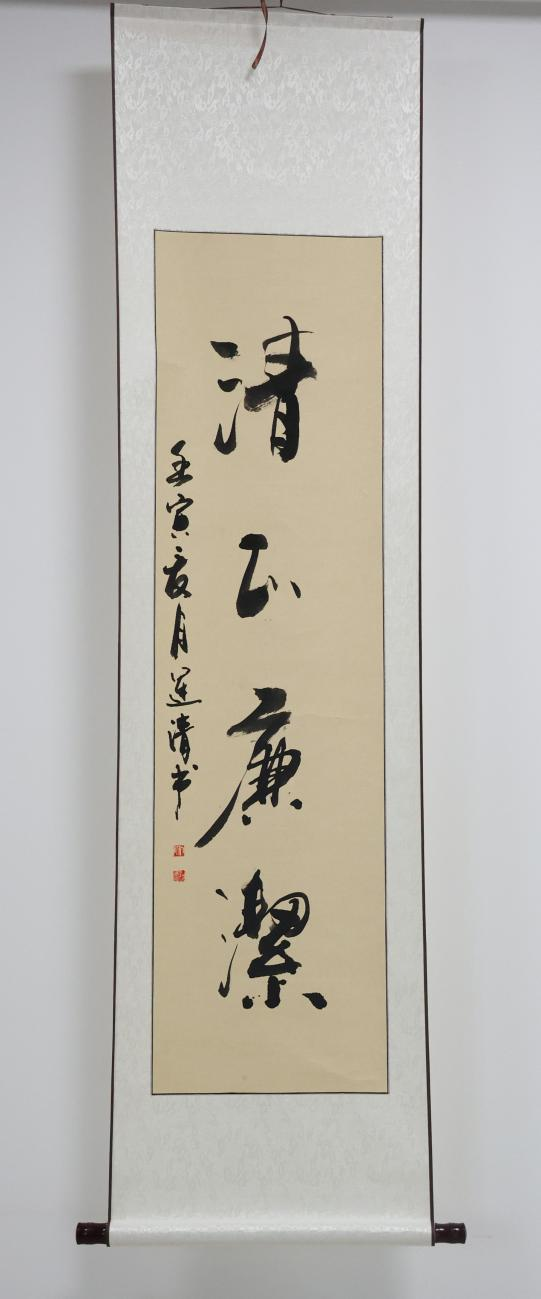 清正廉潔
壬寅夏月運清书